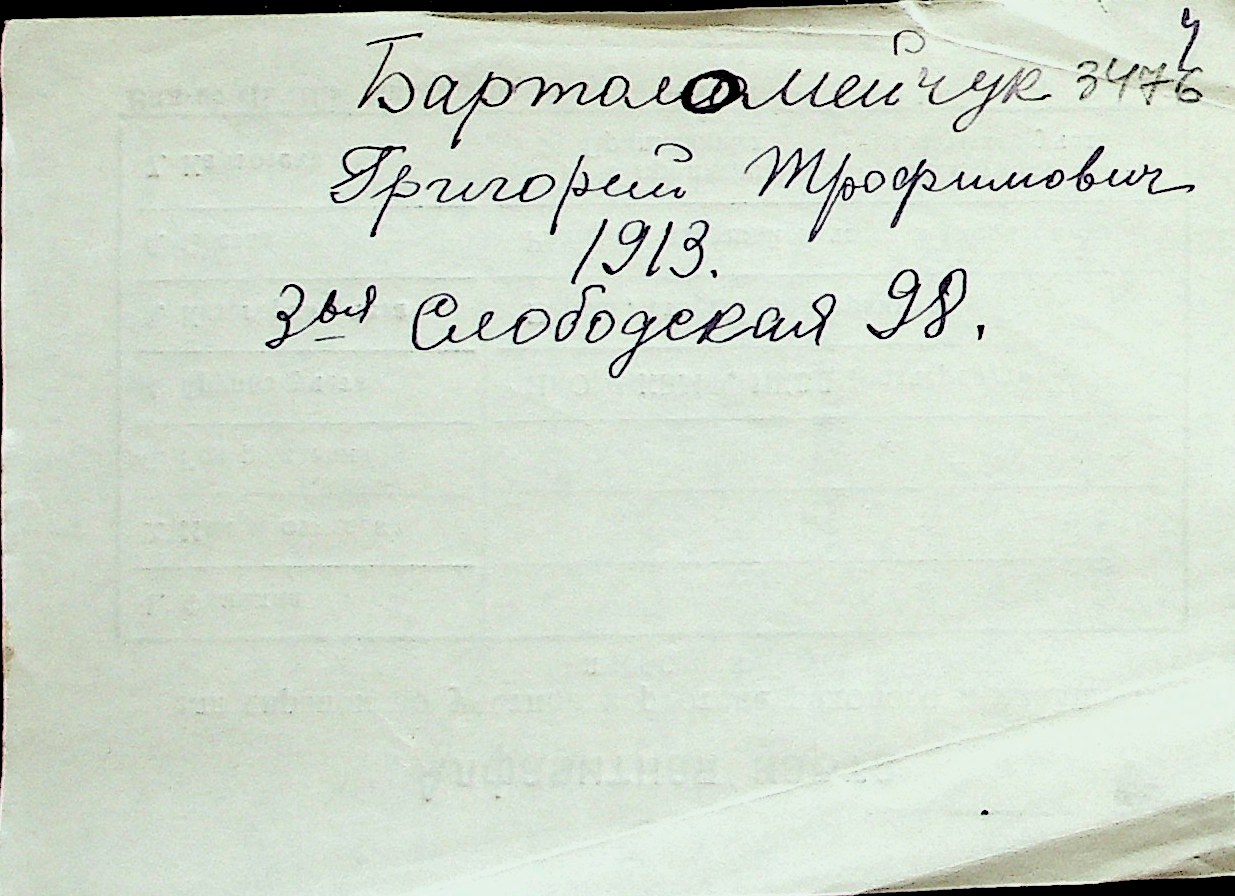 Бартоломейчук
Григорий Трофимович
1913.
3ья Слободская 98.